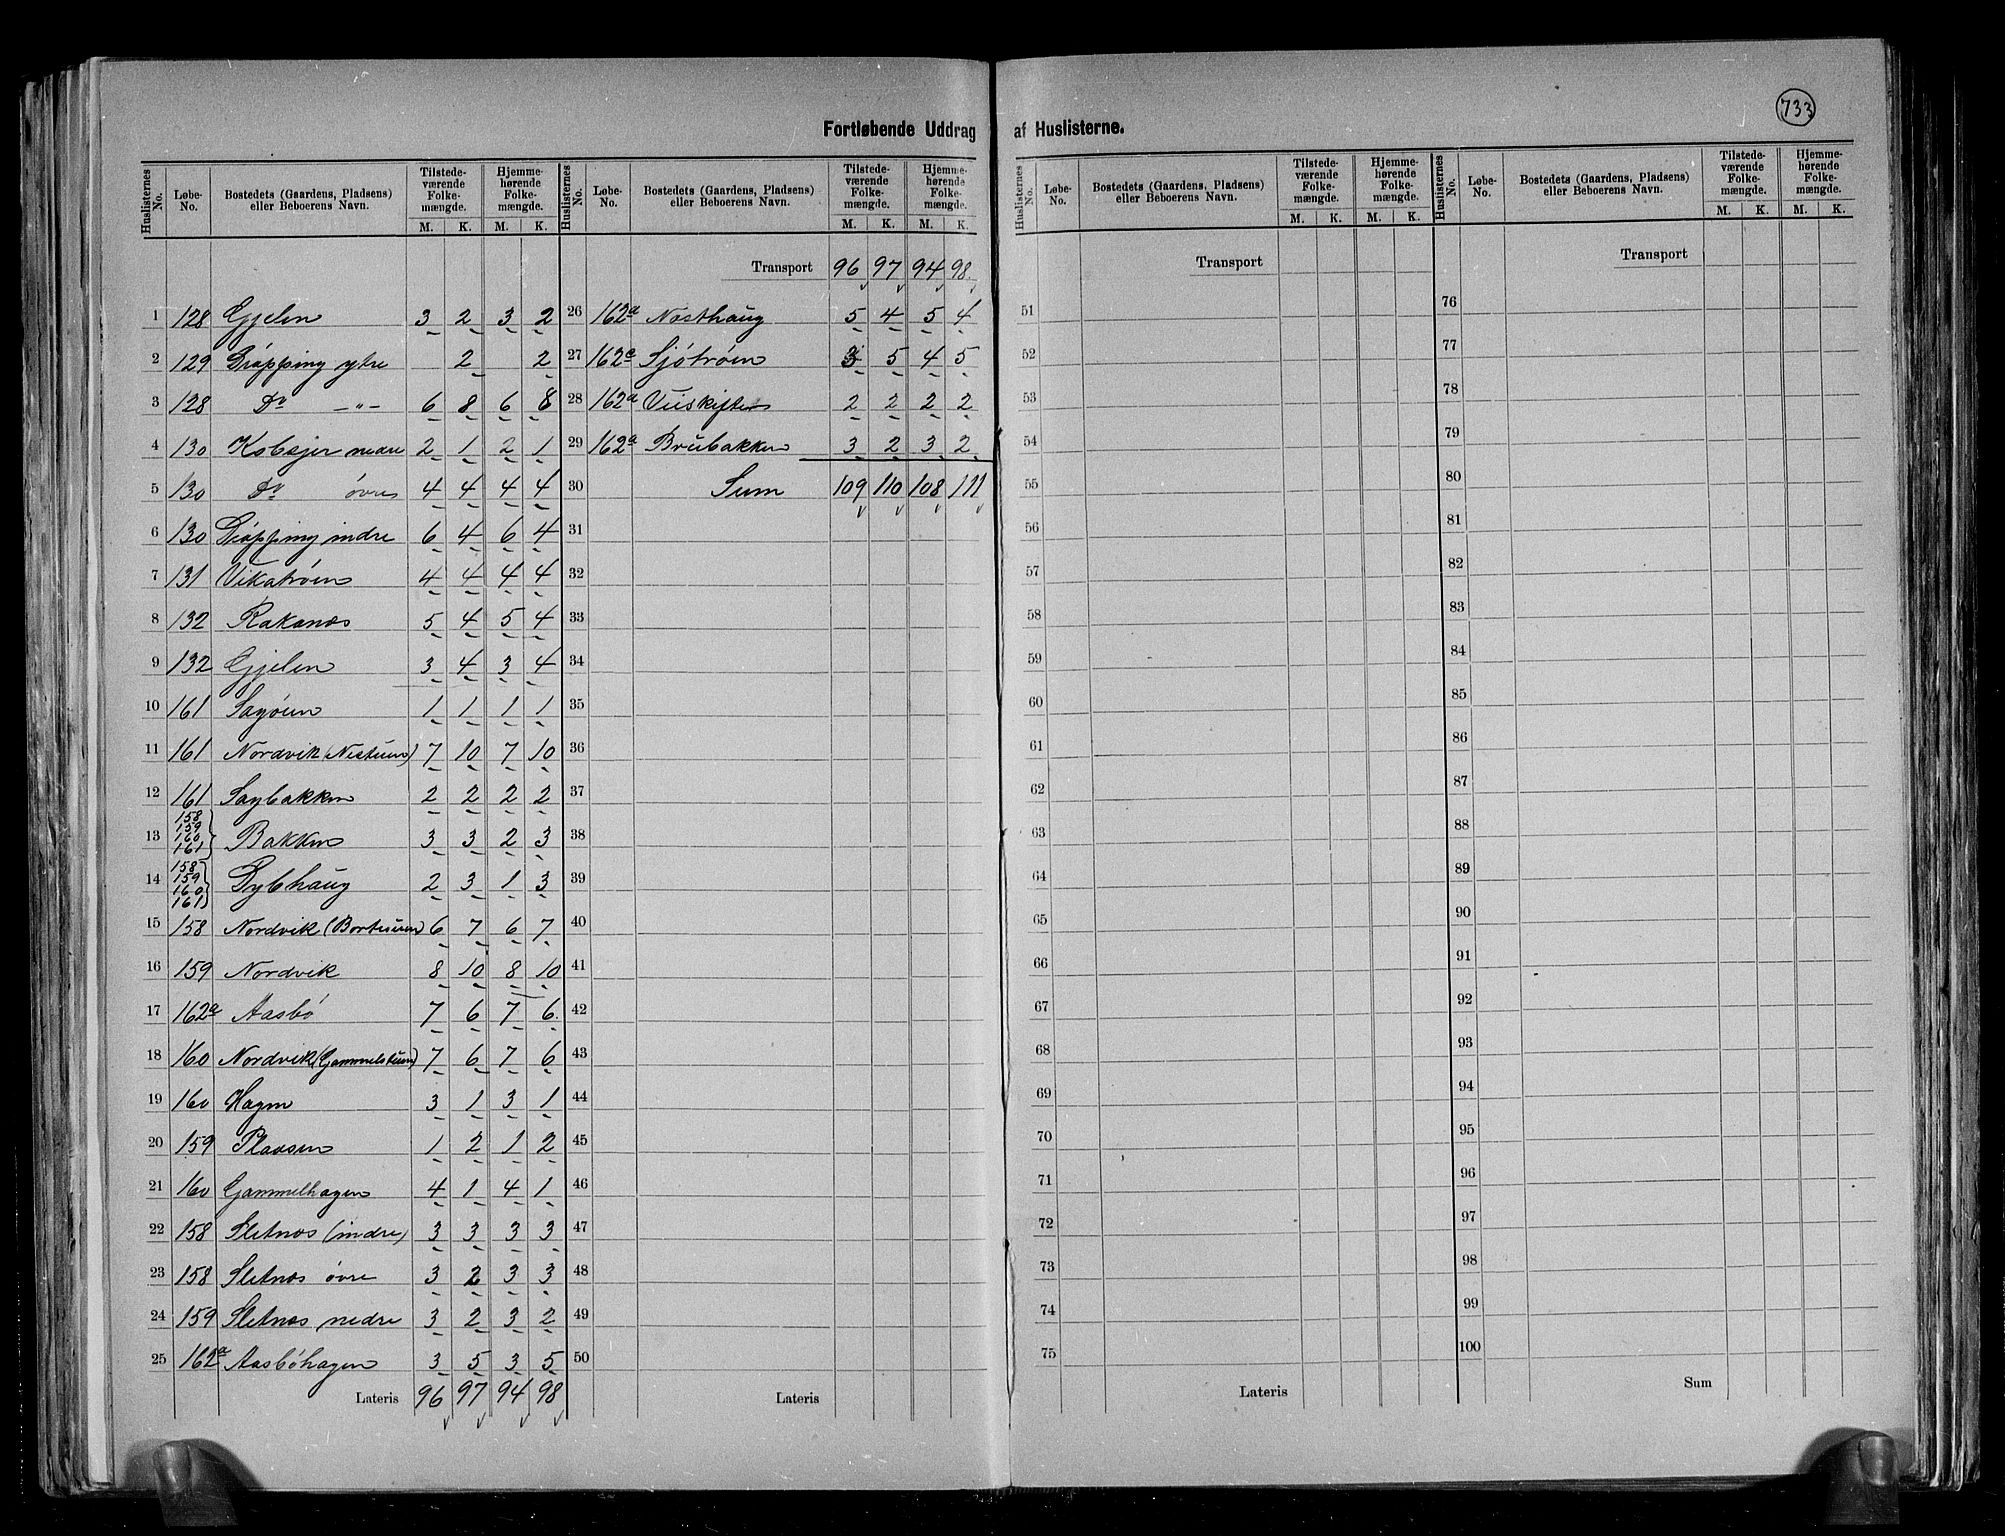 733
Fortløbende Uddrag af Huslisterne.
Huslisternes No. Løbe-No. Bostedets (Gaardens, Pladsens) eller Beboerens Navn. Tilstedeværende Folkemængde. M. K. Hjemmehørende Folkemængde. M. K.
1 128 Gjelen 3 2 3 2
2 129 Drøpping ytre 2 2
3 128 Do —"— 6 8 6 8
4 130 Kobsjer nedre 2 1 2 1
5 130 Do øvre 4 4 4 4
6 130 Drøpping indre 6 4 6 4
7 131 Vikatrøen 4 4 4 4
8 132 Rakanæs 5 4 5 4
9 132 Gjelen 3 4 3 4
10 161 Sagøien 1 1 1 1
11 161 Nordvik (Nestuen) 7 10 7 10
12 161 Sagbakken 2 2 2 2
13 158 159 160 161 } Bakken 3 3 2 3
14 158 159 160 161 } Dybhaug 2 3 1 3
15 158 Nordvik (Bortstuen) 6 7 6 7
16 159 Nordvik 8 10 8 10
17 162a Aasbø 7 6 7 6.
18 160 Nordvik (Gammelstuen) 7 6 7 6
19 160 Hagen 3 1 3 1
20 159 Pladsen 1 2 1 2
21 160 Gammelhagen 4 1 4 1
22 158 Sletnæs (indre) 3 3 3 3
23 158 Sletnæs øvre 3 2 3 3
24 159 Sletnæs nedre 3 2 3 2
25 162a Aasbøhagen 3 5 3 5
Lateris 96 97 94 98
Huslisternes No. Løbe-No. Bostedets (Gaardens, Pladsens) eller Beboerens Navn. Tilstedeværende Folkemængde. M. K. Hjemmehørende Folkemængde. M. K.
Transport 96 97 94 98.
26 162a Nøsthaug 5 4 5 4
27 162a Sjøtrøen 3 5 4 5
28 162a Uiskiften 2 2 2 2
29 162a Brubakken 3 2 3 2
30 Sum 109 110 108 111
31
32
33
34
35
36
37
38
39
40
41
42
43
44
45
46
47
48
49
50
Lateris
Huslisternes No. Løbe-No. Bostedets (Gaardens, Pladsens) eller Beboerens Navn. Tilstedeværende Folkemængde. M. K. Hjemmehørende Folkemængde. M. K.
Transport
51
52
53
54
55
56
57
58
59
60
61
62
63
64
65
66
67
68
69
70
71
72
73
74
75
Lateris
Huslisternes No. Løbe-No. Bostedets (Gaardens, Pladsens) eller Beboerens Navn. Tilstedeværende Folkemængde. M. K. Hjemmehørende Folkemængde. M. K.
Transport
76
77
78
79
80
81
82
83
84
85
86
87
88
89
90
91
92
93
94
95
96
97
98
99
100
Sum